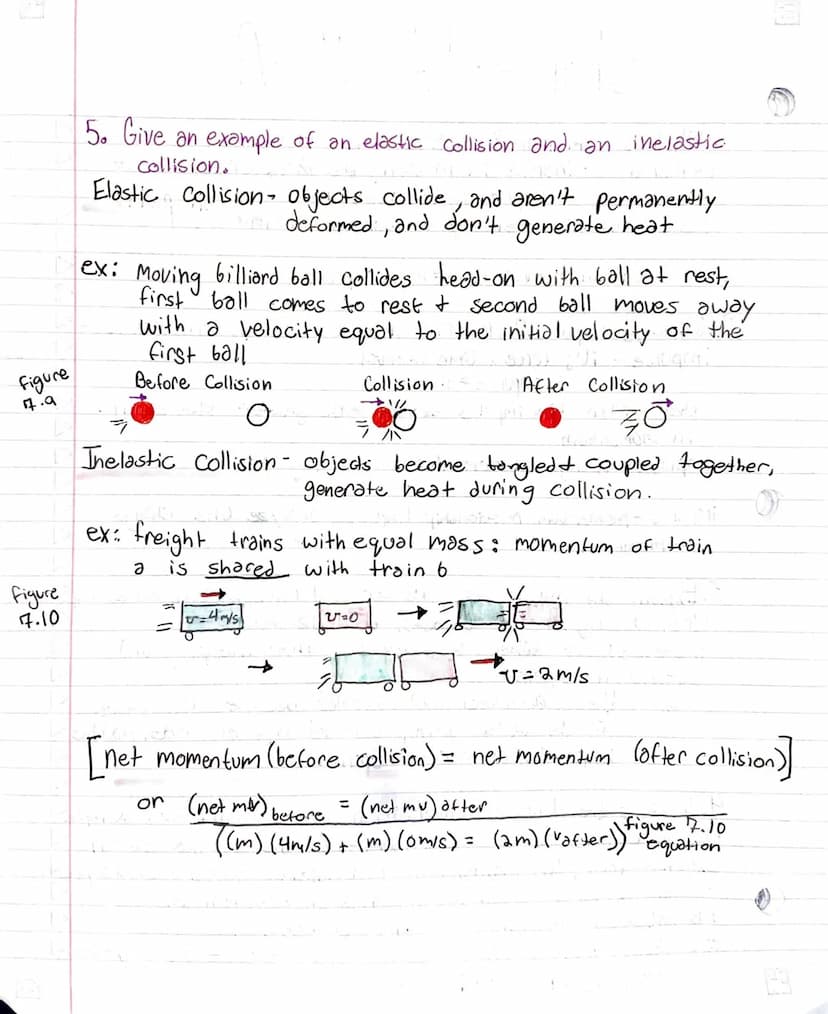 5. Give an example of an elastic collision and an inelastic
collision.
Elastic Collision- objects collide, and aren't permanently
deformed, and don't generate heat
ex: Moving billiard ball collides head-on with ball at rest,
first ball comes to rest + second ball moves away
with a velocity equal to the initial velocity of the
first ball
figure
7.9
Before Collision
Collision
After Collision
Inelastic Collision- objects become tangled + coupled together,
generate heat during collision.
ex: freight trains with equal mass: momentum of train
a is shared with train b
figure
7.10
v=4m/s
v=0
v=2m/s
[net momentum (before collision) = net momentum (after collision)]
or (net mv) before = (net mv) after
((m)(4m/s) + (m)(0m/s) = (2m)(vafter))
figure 7.10
equation